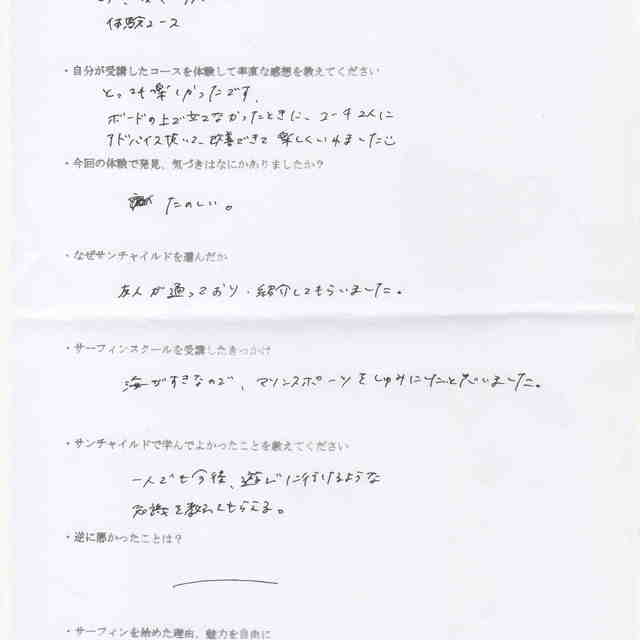 体験コース
・自分が受講したコースを体験して率直な感想を教えてください
とっても楽しかったです。
ボードの上で立てなかったときに、コーチ2人に
アドバイス頂いて、改善できて楽しくいれました
・今回の体験で発見、気づきはなにかありましたか？
たのしい。
・なぜサンチャイルドを選んだか
友人が通っており、紹介してもらいました。
・サーフィンスクールを受講したきっかけ
海がすきなので、マリンスポーツをしゅみにしたと思いました。
・サンチャイルドで学んでよかったことを教えてください
一人でも今後、遊びに行けるような
知識を教えてもらえる。
・逆に悪かったことは？
・サーフィンを始めた理由、魅力を自由に